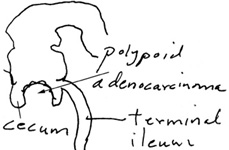 polypoid
adenocarcinoma
cecum
terminal
ileum